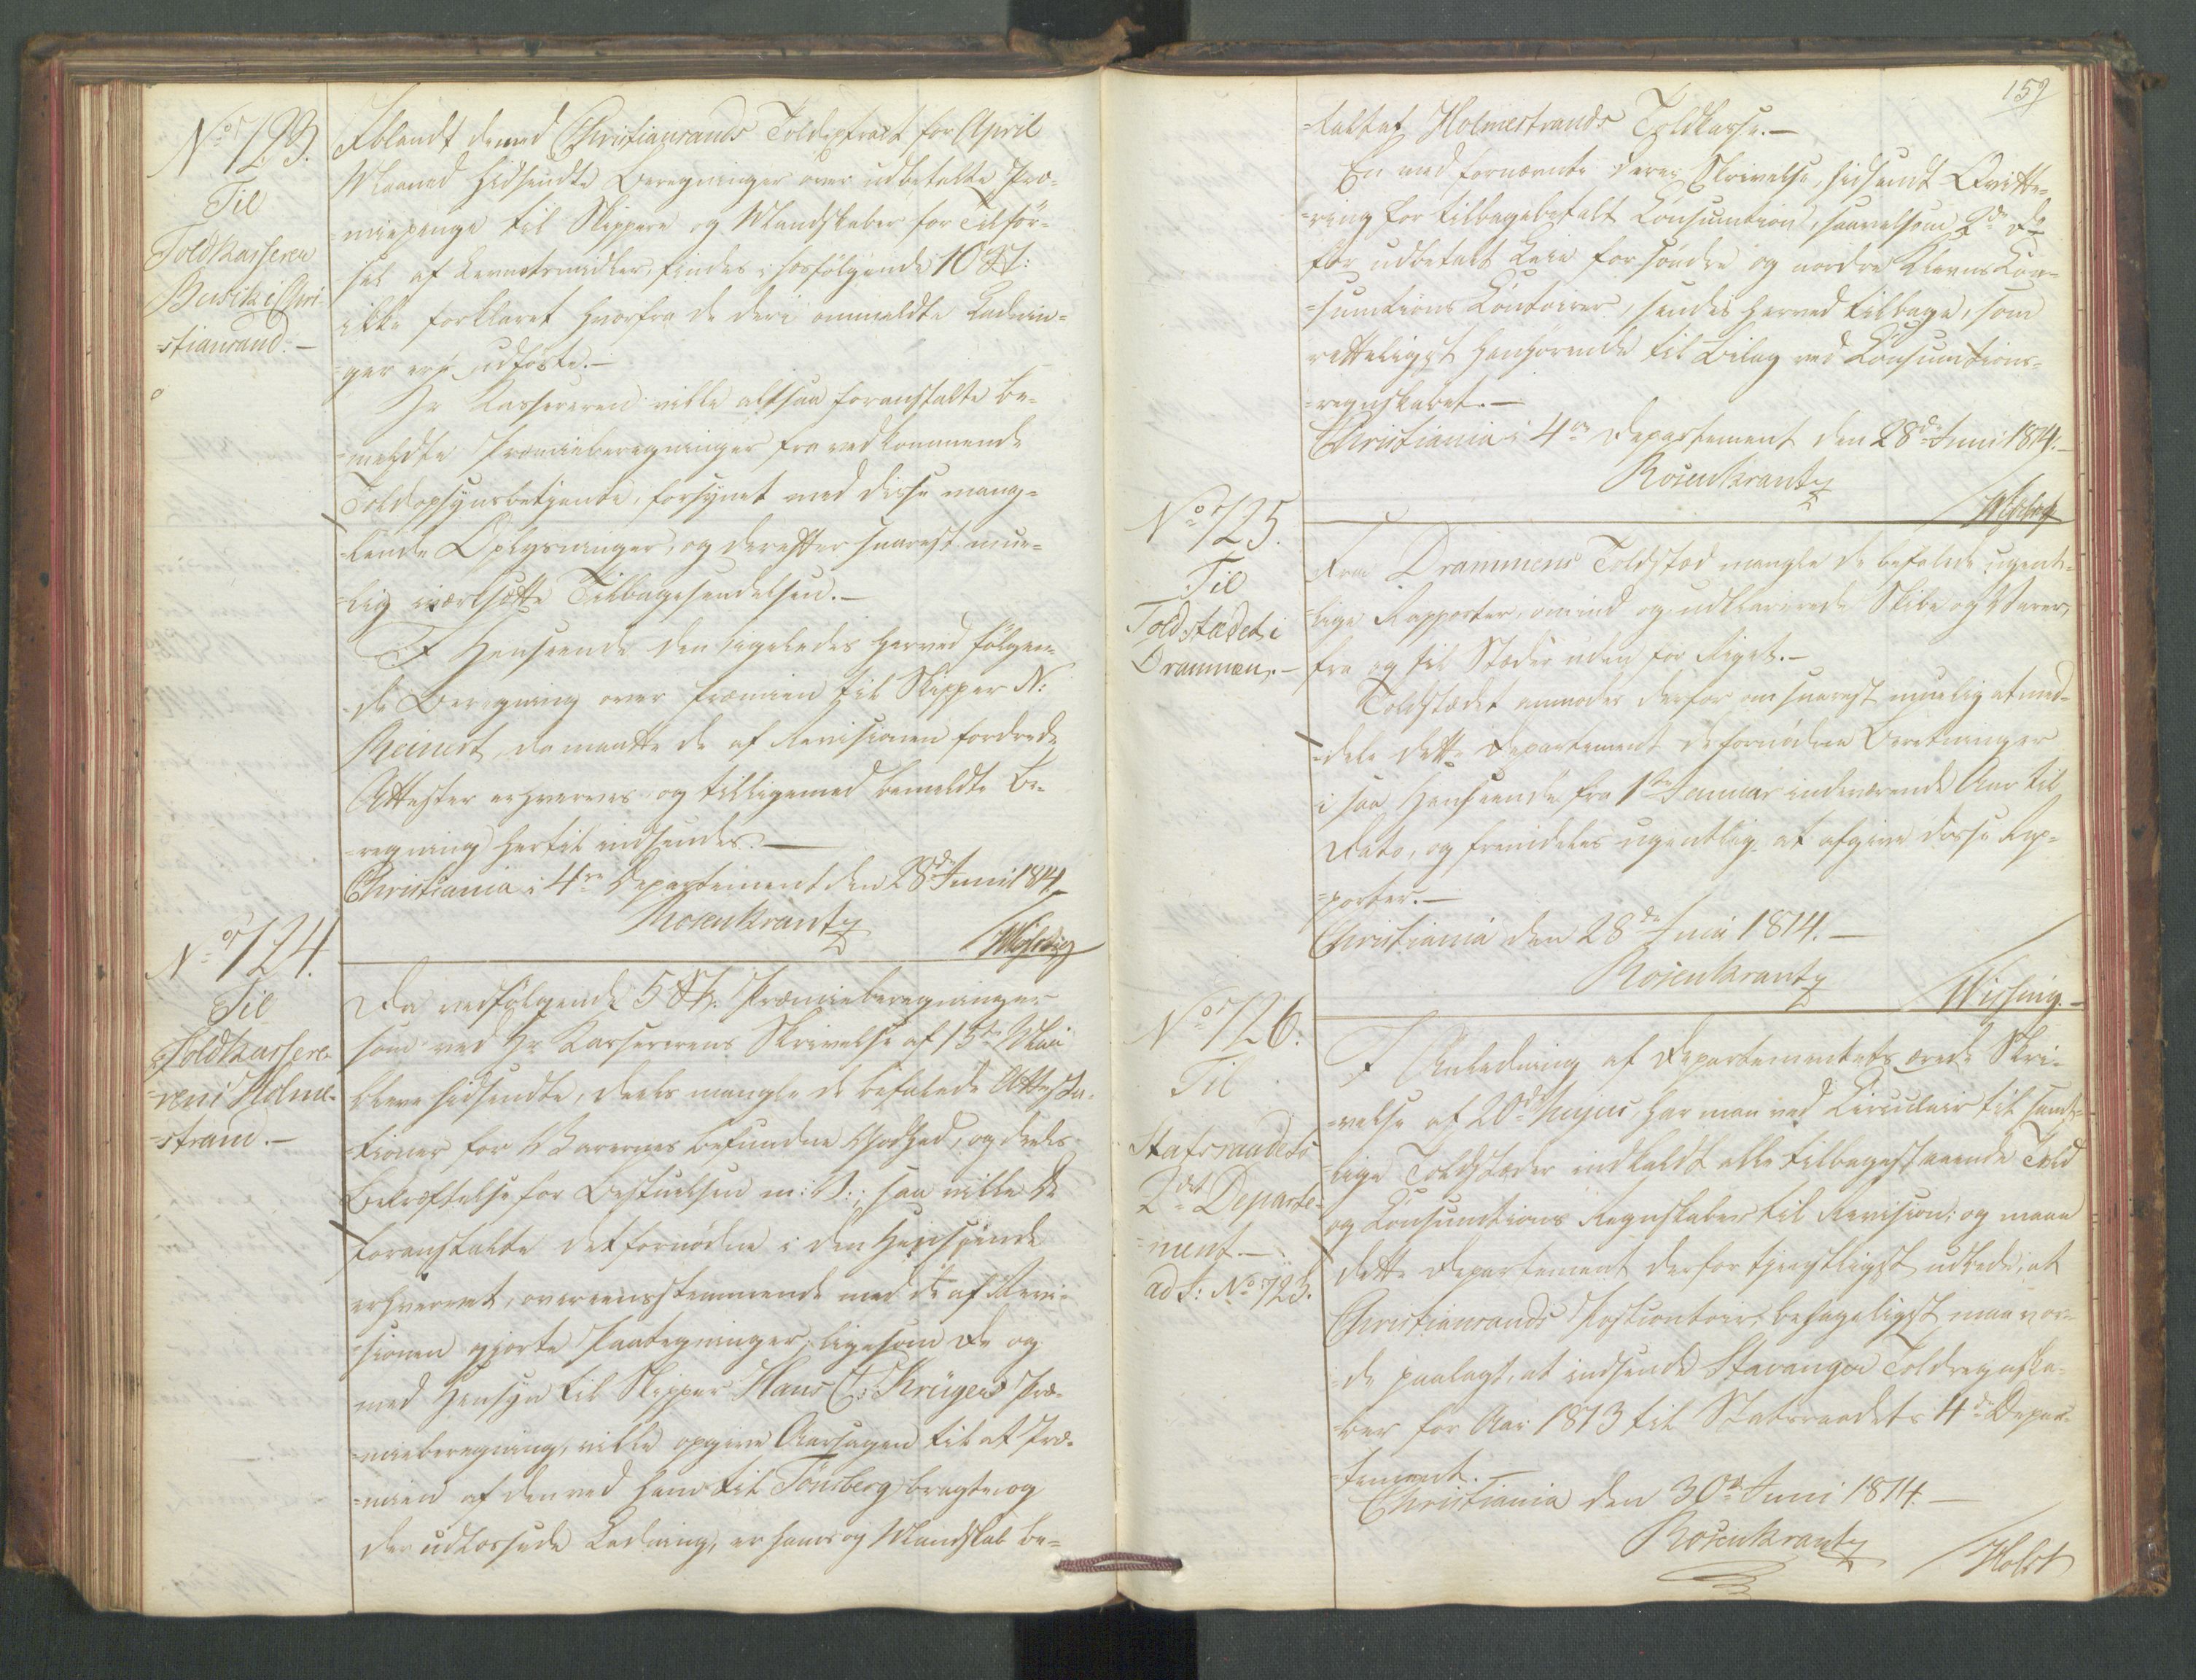 No 723.
Til
Toldkasserer
Busch i Chri-
-stiansand.-
Iblandt de med Christiansands Toldextract for April
Maaned hidsendte Beregninger over udbetalte Præ-
-miepenge til Skippere og Mandskaber for Tilför-
sel af Levnetsmidler, findes i hosfölgende 10 St:
ikke forklaret hvorfra de deri ommeldte Ladnin-
-ger ere udförte.-
Hr Kassereren ville altsaa foranstalte be-
-meldte Præmieberegninger fra vedkommende
Toldopsynsbetjente, forsynet med disse mang-
-lende Oplysninger, og derefter snarest mue-
-lig iværksætte Tilbagesendelsen.-
I Henseende den ligeledes herved fölgen-
de Beregning over Præmien til Skipper N:
Reinert, da maatte de af Revisionen fordrede
Attester erhverves og tilligemed bemeldte Be-
-regning hertil indsendes.-
Christiania i 4re Departement den 28de Junii 1814
Rosenkrantz
No 724.
Til
Toldkassere-
-ren i Holme-
-strand.-
Da vedfölgende 5 St. Præmieberegninger
som ved Hr Kassererens Skrivelse af 15de Maii
bleve hidsendte, deels mangle de befalede Attesta-
-tioner for Varernes befundne Godhed, og deels
Bekræftelse for Bestuelsen m: V:, saa ville De
foranstalte det fornödne i den Henseende
erhvervet, overeensstemmende med de af Revi-
-sionen gjorte Paategninger; ligesom De og
med Hensyn til Skipper Hans C: Krügers Præ-
-mieberegning, ville opgive Aarsagen til at Præ-
-mien af den ved ham til Tönsberg bragte og
der udlossede Ladning, er ham og Mandskab be-
159
-talt af Holmestrands Toldkasse.-
En med fornævnte Deres Skrivelse, hidsendt Qvitte-
-ring for tilbagebetalt Consumtion, saavelsom 2de Do
for udbetalt Leie for söndre og nordre Kleven Con-
-sumtions Contoirer, sendes herved tilbage, som
retteligst henhörende til Bilag ved Consumtions-
-regnskabet.-
Christiania i 4re Departement den 28de Juni 1814.
Rosenkrantz
No 725.
Til
Toldstædet i
Drammen.-
Fra Drammens Toldsted mangle de befalede ugent-
-lige Rapporter, om ind og udklarerede Skibe og Varer,
fra og til Stæder uden for Riget.-
Toldstædet anmodes derfor om snarest muelig at med-
-dele dette Departement de fornödne Beretninger
i saa Henseende fra 1ste Januar indeværende Aar til
Dato, og fremdeles ugentlig at afgive disse Rap-
-porter.-
Christiania den 28de Juni 1814.-
Rosenkrantz
Wissing.-
No 726.
Til
Statsraadets
2det Departe-
-ment.-
ad J: No 723.
I Anledning af Departementets ærede Skri-
-velse af 20de hujus, har man ved Circulair til samt-
-lige Toldstæder indkaldt alle tilbagestaaende Told
og Consumtions Regnskaber til Revision; og maae
dette Departement derfor tjenstligst udbede, at
Christiansands Postcontoir, behageligst maa vor-
-de paalagt, at indsende Stavanger Toldregnska-
-ber for Aar 1813 til Statsraadets 4de Depar-
-tement.-
Christiania den 30te Juni 1814.-
Rosenkrantz
Holst